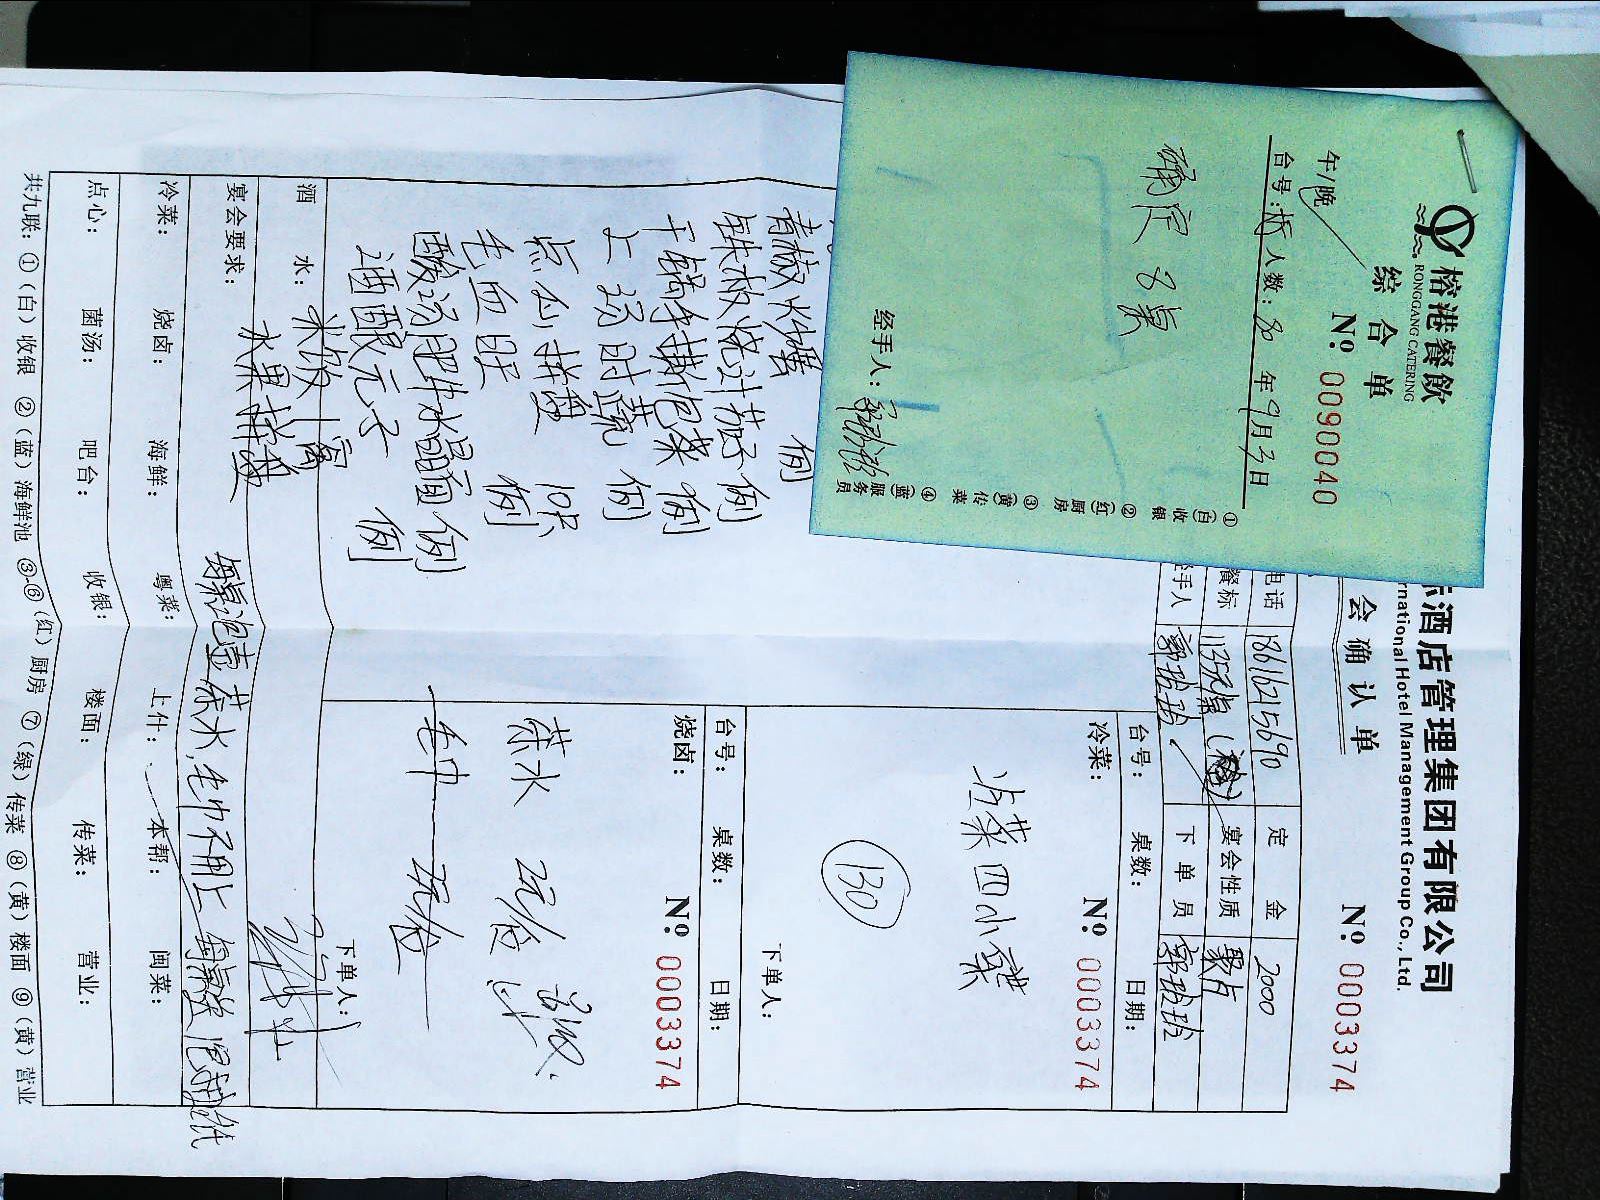 榕港餐飲
RONGGANG CATERING
综合单
午/晚
№ 0090040
台号: 人数: 30 年9月3日
确定 8桌
经手人:
①(白)收银 ②(红)厨房 ③(黄)传菜 ④(蓝)服务员
际酒店管理集团有限公司
rnational Hotel Management Group Co., Ltd.
会确认单
№ 0003374
电话 18616215690 定金 2000
餐标 宴会性质
经手人 郭玲玲 下单员 郭玲玲
台号: 桌数: 日期:
冷菜: № 0003374
冷菜四小碟
130
下单人:
台号: 桌数: 日期:
烧卤: № 0003374
茶水 2元/位
毛巾 2元/位
下单人:
青椒 例
铁板烧汁茄子 例
干锅手撕包菜 例
上汤时蔬 例
点心拼盘 10只
毛血旺 例
酸汤肥牛水晶面 例
酒酿元子 例
酒水: 米饭 一窝
水果拼盘
宴会要求: 每桌泡壶茶水,毛巾不用上
冷菜: 烧卤: 海鲜: 粤菜: 上什: 本帮: 闽菜:
点心: 菌汤: 吧台: 收银: 楼面: 传菜: 营业:
共九联: ①(白)收银 ②(蓝)海鲜池 ③-⑥(红)厨房 ⑦(绿)传菜 ⑧(黄)楼面 ⑨(黄)营业